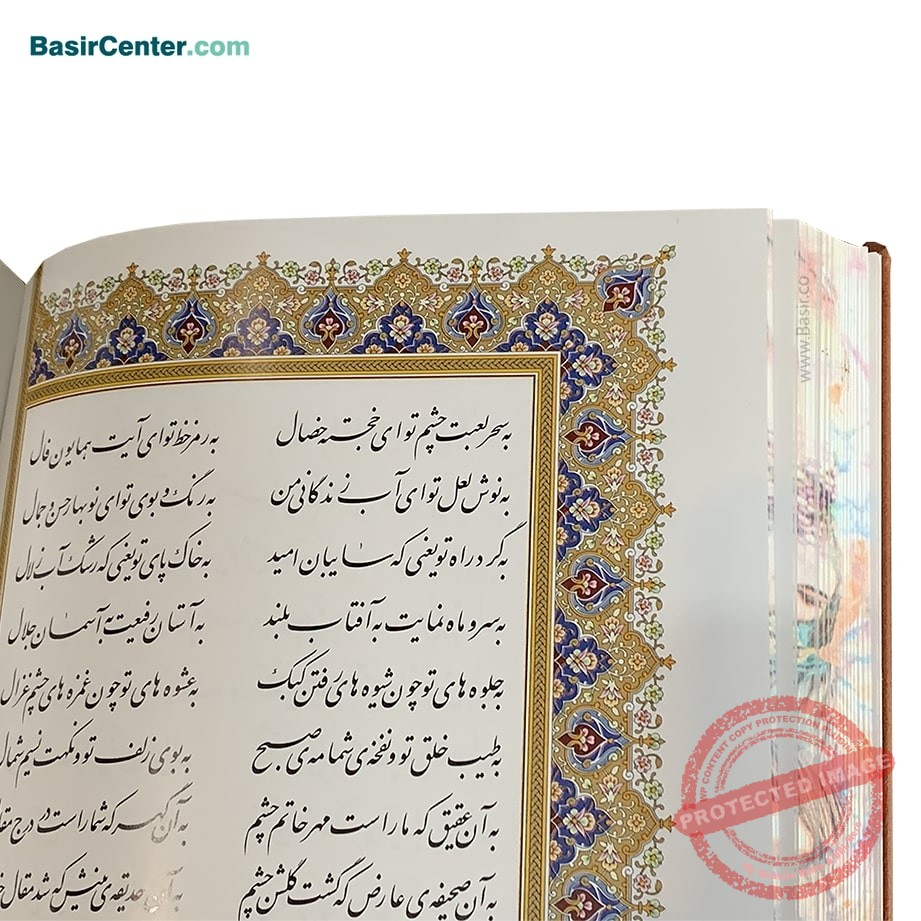 BasirCenter.com
به سحر لعبت چشم تو ای خجسته خصال به رمز خط تو ای آیت همایون فال
به نوش لعل تو ای آب زندگانی من به رنگ و بوی تو ای نوبهار حسن و جمال
به گرد راه تو یعنی که سایبان امید به خاک پای تو یعنی که رشک آب زلال
به سرو ماه نمایت به آفتاب بلند به آستان رفعیت به آسمان جلال
به جلوه های تو چون شیوه های رفتن کبک به عشوه های تو چون غمزه های چشم غزال
به طیب خلق تو و نفخه ی شمامه ی صبح به بوی زلف تو و نکهت نسیم شمال
به آن عقیق که ما راست مهر خاتم چشم به آن گهر که شما راست در درج
به آن صحیفه ی عارض که گشت گلشن چشم به آن حدیقه ی بینش که شد مقال
www.Basir.co
COPY PROTECTION
PROTECTED IMAGE